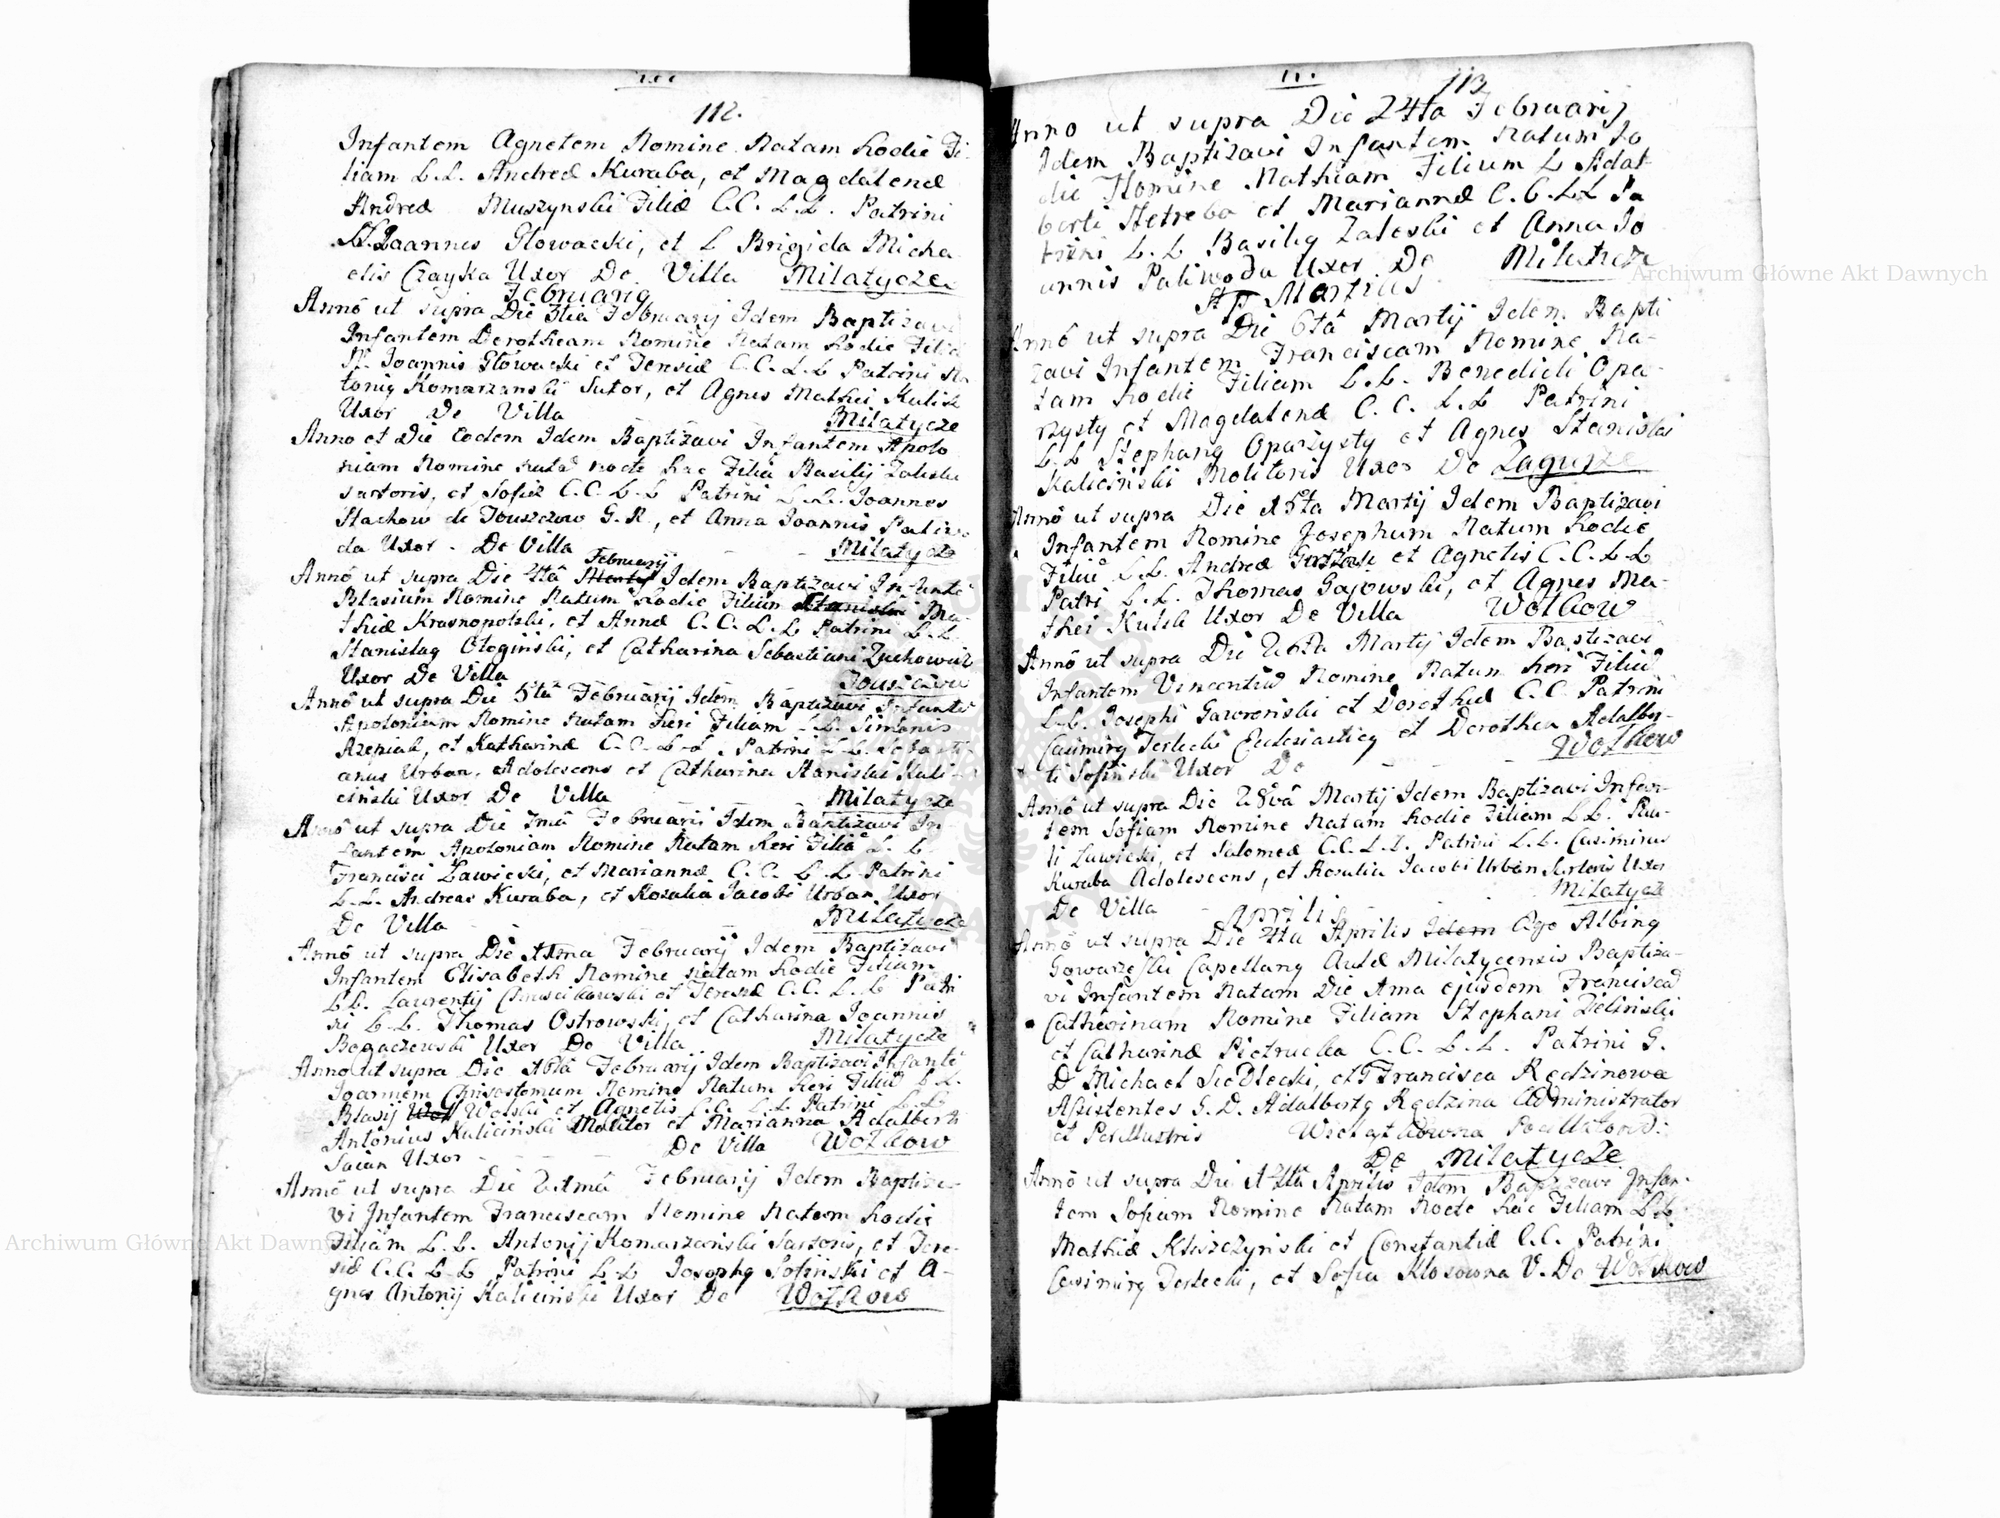 112.
Infantem Agnetem Nomine Natam hodie Fi-
liam L.L. Andreæ Kuraba, et Magdalenæ
Andreæ Muszynski Filiæ C.C. L.L. Patrini
Joannes Głowacki, et L Brigida Micha
elis Czayka Uxor De Villa Milatycze
Februarig
Annô ut supra Die 3tia Februarij Idem Baptizavi
Infantem Dorotheam Nomine Natam hodie Filiã
Joannis Głowacki et Teresiæ C.C. L.L Patrini An
tonig Komarzanski Sutor, et Agnes Mathei Kulik
Uxor De Villa Milatycze
Anno et Die eodem Idem Baptizavi Infantem Apolo
niam Nomine natã nocte hac Filiã Basilij Zaleski
sartoris, et Sofiæ C.C. L.L Patrini L.L. Joannes
Stachow de Touszczow G.R., et Anna Joannis Paliwo
da Uxor - De Villa Milatycze
Februarij
Annô ut supra Die 4tâ Martij Idem Baptizavi Infantê
Blasium Nomine Natum hodie Filium Stanislai Ma-
thiæ Krasnopolski, et Annæ C.C. L.L Patrini L.L.
Stanislag Ologinski, et Catharina Sebastiani Zuchowicz
Uxor De Villa
Annô ut supra Die 5tâ Februarij Idem Baptizavi Infantê
Apoloniam Nomine Natam heri Filiam L.L. Simonis
et Katharinæ C.C. L.L. Patrini L.L. Sebasti-
anus Urban, Adolescens et Catharina Stanislai Kali-
cinski Uxor De Villa Milatycze
Annô ut supra Die 7mâ Februarij Idem Baptizavi In
fantem Apoloniam Nomine Natam heri Filiã L.L.
Francisci Lawicki, et Mariannæ C.C. L.L Patrini
L.L. Andreas Kuraba, et Rosalia Jacobi Urban Uxor
De Villa Milatycze
Annô ut supra Die 11ma Februarij Idem Baptizavi
Infantem Elisabeth Nomine natam hodie Filiam
L.L. Laurentij et Teresiæ C.C. L.L Patri
ni L.L. Thomas Ostrowski, et Catharina Joannis
Bogaczewski Uxor De Villa Milatycze
Anno ut supra Die 16tâ Februarij Idem Baptizavi Infantê
Joannem Chrisostomum Nomine Natum heri Filiũ L.L.
Blasij Wolski et Agnetis C.C. L.L Patrini L.L.
Antonius Kaliciński Molitor et Marianna Adalberti
Saian Uxor De Villa Wołkow
Annô ut supra Die 21mâ Februarij Idem Baptiza-
vi Infantem Franciscam Nomine Natam hodie
Filiam L.L. Antonij Komarzański Sartoris, et Tere-
siæ C.C. L.L Patrini L.L Josephg Sofinski et A-
gnes Antonij Kaliciński Uxor De Wołkow
113
Anno ut supra Die 24ta Februarij
Idem Baptizavi Infantem Natum ho
die Nomine Mathiam Filium L Adal-
berti Netreba et Mariannæ C.C. L.L Pa
trini L.L Basilig Zaleski et Anna Jo
annis Paliwoda Uxor De Milatycze
Martius
Annô ut supra Die 6tâ Martij Idem Bapti
zavi Infantem Franciscam Nomine Na-
tam hodie Filiam L.L. Benedicti Opa-
rzysty et Magdalenæ C.C. L.L Patrini
L.L Stephang Oparzysty et Agnes Stanislai
Kaliciński Molitoris Uxor De Zagurze
Annô ut supra Die 15ta Martij Idem Baptizavi
Infantem Nomine Josephum Natum hodie
Filiũ L.L. Andreæ et Agnetis C.C. L.L
Patri L.L. Thomas Gajowski, et Agnes Ma-
thei Kulik Uxor De Villa Wołkow
Annô ut supra Die Martij Idem Baptizavi
Infantem Vincentiũ Nomine Natum heri Filiũ
L.L. Josephi Gaworoński et Dorotheæ C.C. Patrini
Casimirg Terlecki Ecclesiasticg et Dorothea Adalber-
ti Sofiński Uxor De Wołkow
Annô ut supra Die 28vâ Martij Idem Baptizavi Infan-
tem Sofiam Nomine Natam hodie Filiam L.L. Pau-
li Lawicki, et Salomeæ C.C. L.L. Patrini L.L. Casimirus
Kuraba Adolescens, et Rosalia Jacobi Urban Sartoris Uxor
De Villa Milatycze
Aprilis
Annô ut supra Die 4ta Aprilis Idem Ego Albing
Gowarzeski Capellang Aulæ Milatycensis Baptiza-
vi Infantem Natam Die 1ma ejusdem Franciscã
Catherinam Nomine Filiam Stephani Zieliński
et Catharinæ Pietruska C.C. L.L. Patrini G.
D Michael Siedlecki, et Francisca Rędzinowa
Assistentes G.D. Adalbertg Rędzina Administrator
et Perillustris
De Milatycze
Annô ut supra Die 14tâ Aprilis Idem Baptizavi Infan-
tem Sofiam Nomine Natam Nocte hac Filiam L.L.
Mathiæ Kliszczyński et Constantiæ C.C. Patrini
Casimirg Terlecki, et Sofia Kłosowna V. De Wołkow
Archiwum Główne Akt Dawnych
Archiwum Główne Akt Dawnych